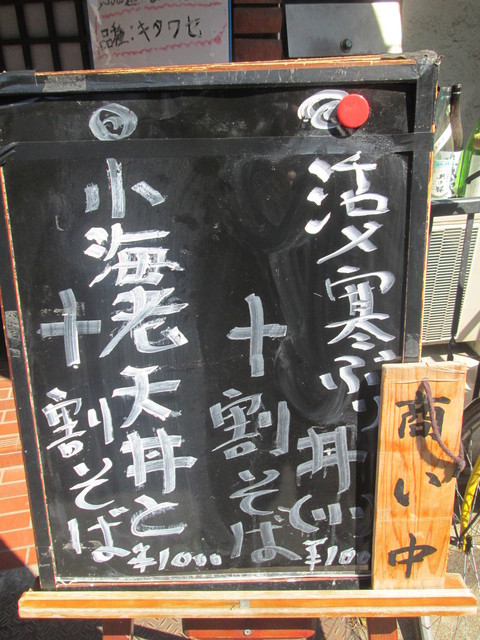 品種:キタワセ
◎
活〆寒ぶり丼と
十割そば
¥100
◎
小海老天丼と
十割そば
¥1000
商い中